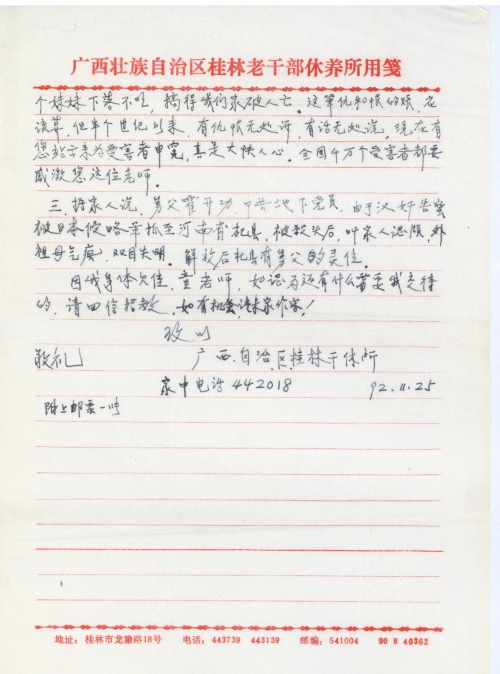 广西壮族自治区桂林老干部休养所用笺
个妹妹下落不明，搞得我们家破人亡。这筆仇和恨的账，应
该算，但半个世纪以来，有仇恨无处诉，有话无处说，现在有
您站出来为受害者申冤，真是大快人心。全国千万个受害者都要
感激您这位老师。
三、据家人说，舅父霍开功，中共地下党员，由于汉奸告密
被日本侵略军抓至河南省杞县，被杀头后，叫家人认领，外
祖母气疯，双目失明。解放后杞县有舅父的灵位。
因我身体欠佳，童老师，如认为还有什么需要我交待
的，请回信招教，如有机会请来家作客！
致以
敬礼
广西自治区桂林干休所
家中电话442018 92.11.25
附上邮票一些
地址：桂林市龙隐路18号 电话：443739 443139 邮编：541004 90 8 40362